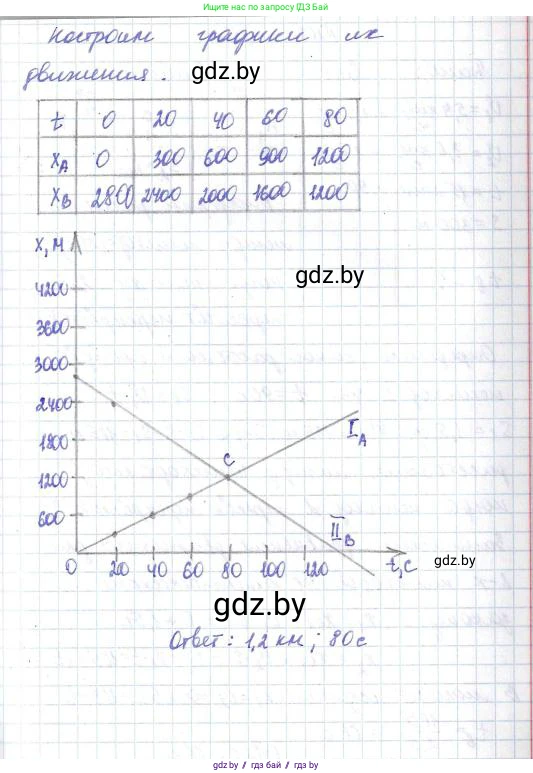 Ищите нас в поиске по запросу GDZ.BY
Построим графики их
движения.
gdz.by
t 0 20 40 60 80
xA 0 300 600 900 1200
xB 2800 2400 2000 1600 1200
x, м
gdz.by
4200
3600
3000
2400
1800
I A
C
1200
600
II B
gdz.by
0 20 40 60 80 100 120 t, c
gdz.by
Ответ: 1,2 км; 80 с
gdz.by / гдз бай / gdz by